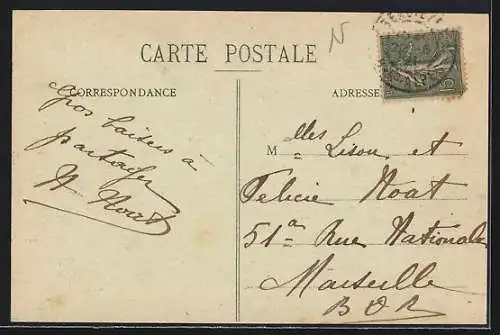 N
CARTE POSTALE
CORRESPONDANCE
ADRESSE
Gros baisers à
partager
H Hoat
Mlles Lison et
Felicie Hoat
51a Rue Nationale
Marseille
B D R